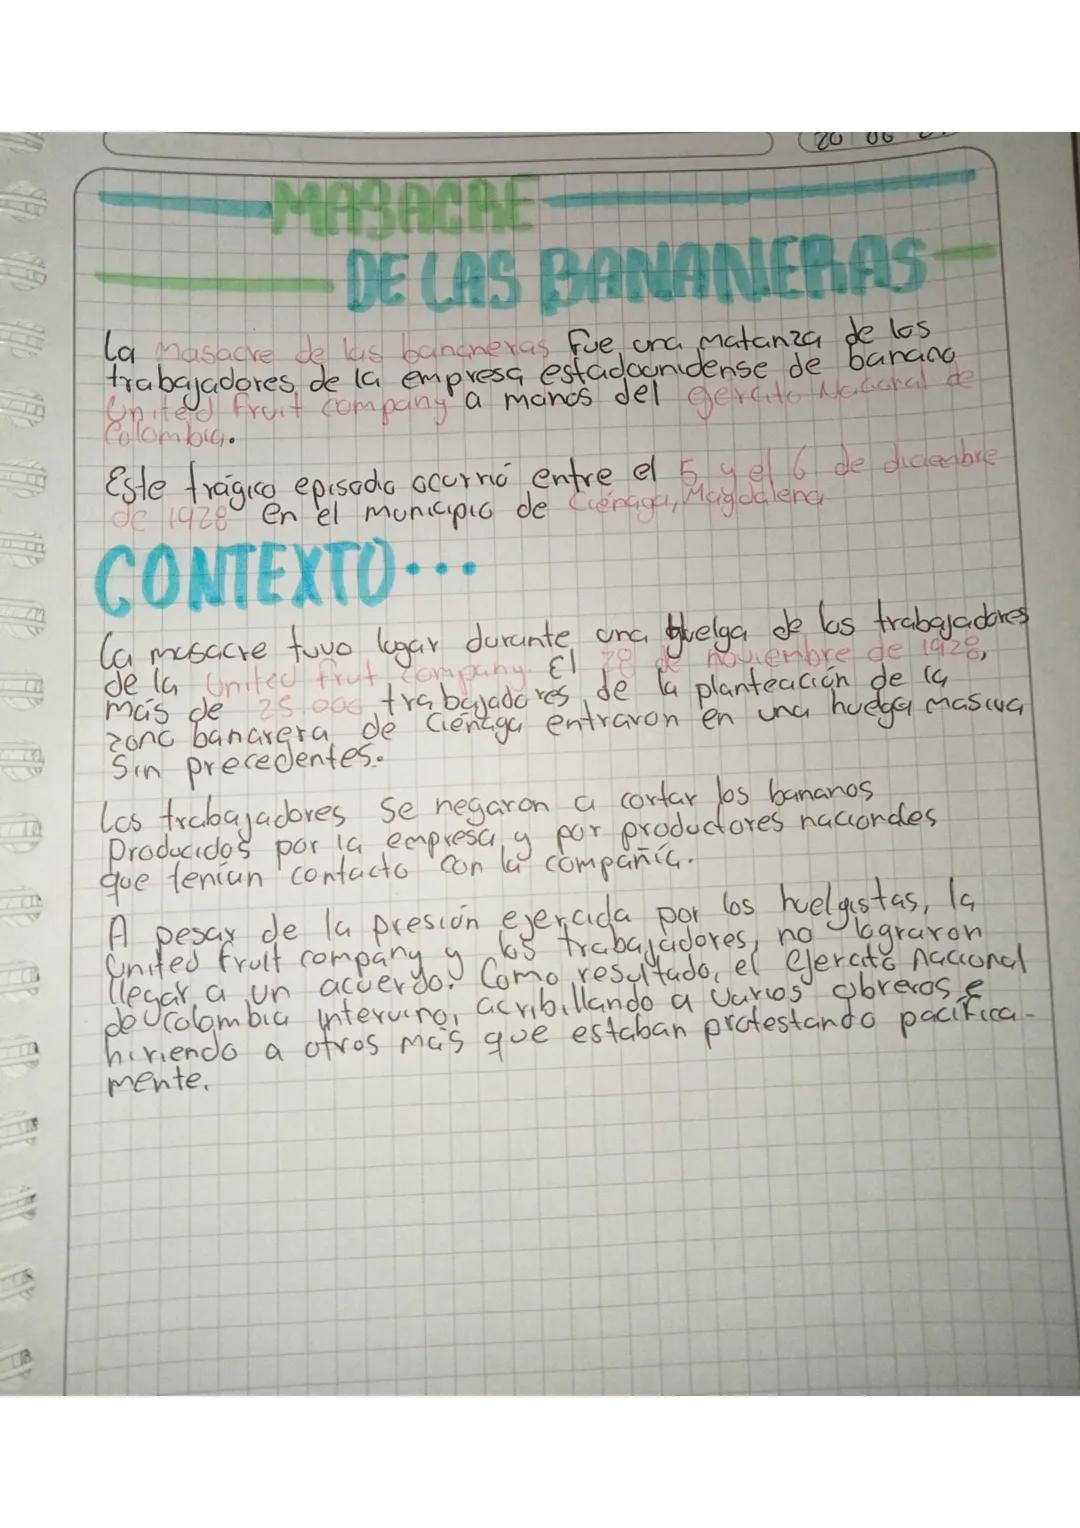 20 06
MASACRE
DE LAS BANANERAS
La masacre de las bananeras fue una matanza de los
trabajadores de la empresa estadounidense de banano
United fruit company a manos del ejercito Nacional de
Colombia.
Este trágico episodio ocurrió entre el 5 y el 6 de diciembre
de 1928 en el municipio de Ciénaga, Magdalena
CONTEXTO...
La masacre tuvo lugar durante una huelga de los trabajadores
de la United frut company. El 28 de noviembre de 1928,
más de 25 000 trabajadores de la planteación de la
zona bananera de Ciénaga entraron en una huelga masiva
Sin precedentes.
Los trabajadores se negaron a cortar los bananos
Producidos por la empresa y por productores nacionales
que tenían contacto con la compañía.
A pesar de la presión ejercida por los huelgistas, la
United fruit company y los trabajadores, no lograron
llegar a un acuerdo. Como resultado, el ejercito Nacional
de colombia intervino, acribillando a varios obreros e
hiriendo a otros más que estaban protestando pacífica-
mente.